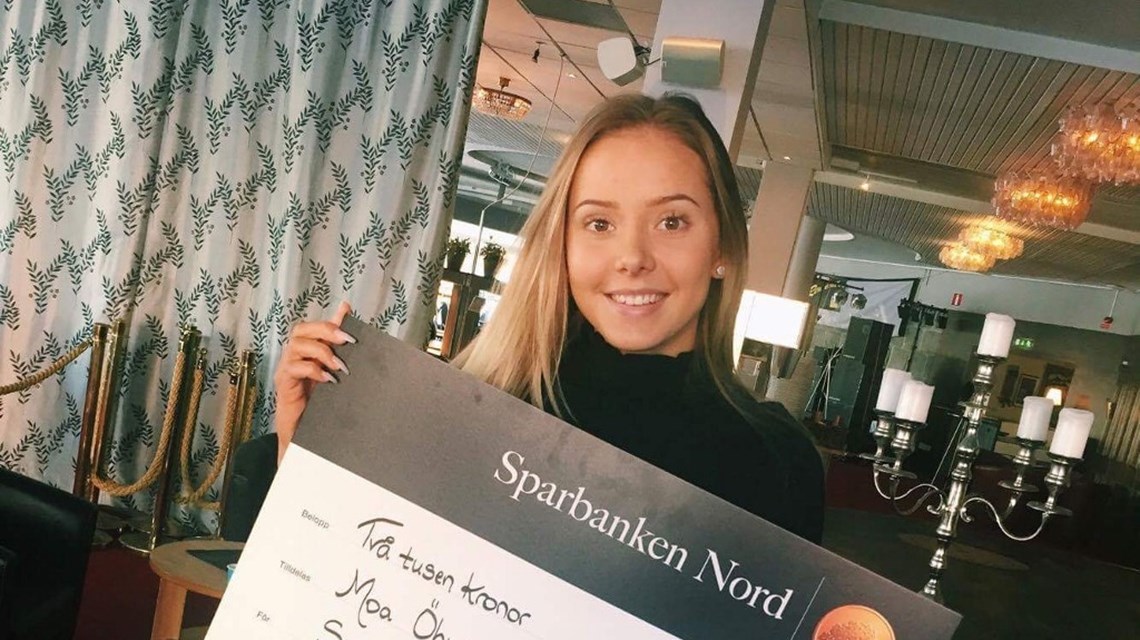 Sparbanken Nord
Belopp Två tusen kronor
Tilldelas Moa
För